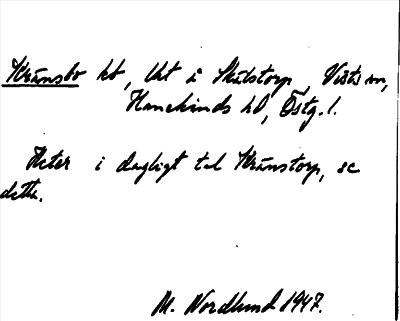 Kränsbo hb, Uht i Skälstorp, Vists sn,
Hanekinds hd, Östg. l.
Heter i dagligt tal Kränstorp, se
detta.
M. Nordlund 1947.